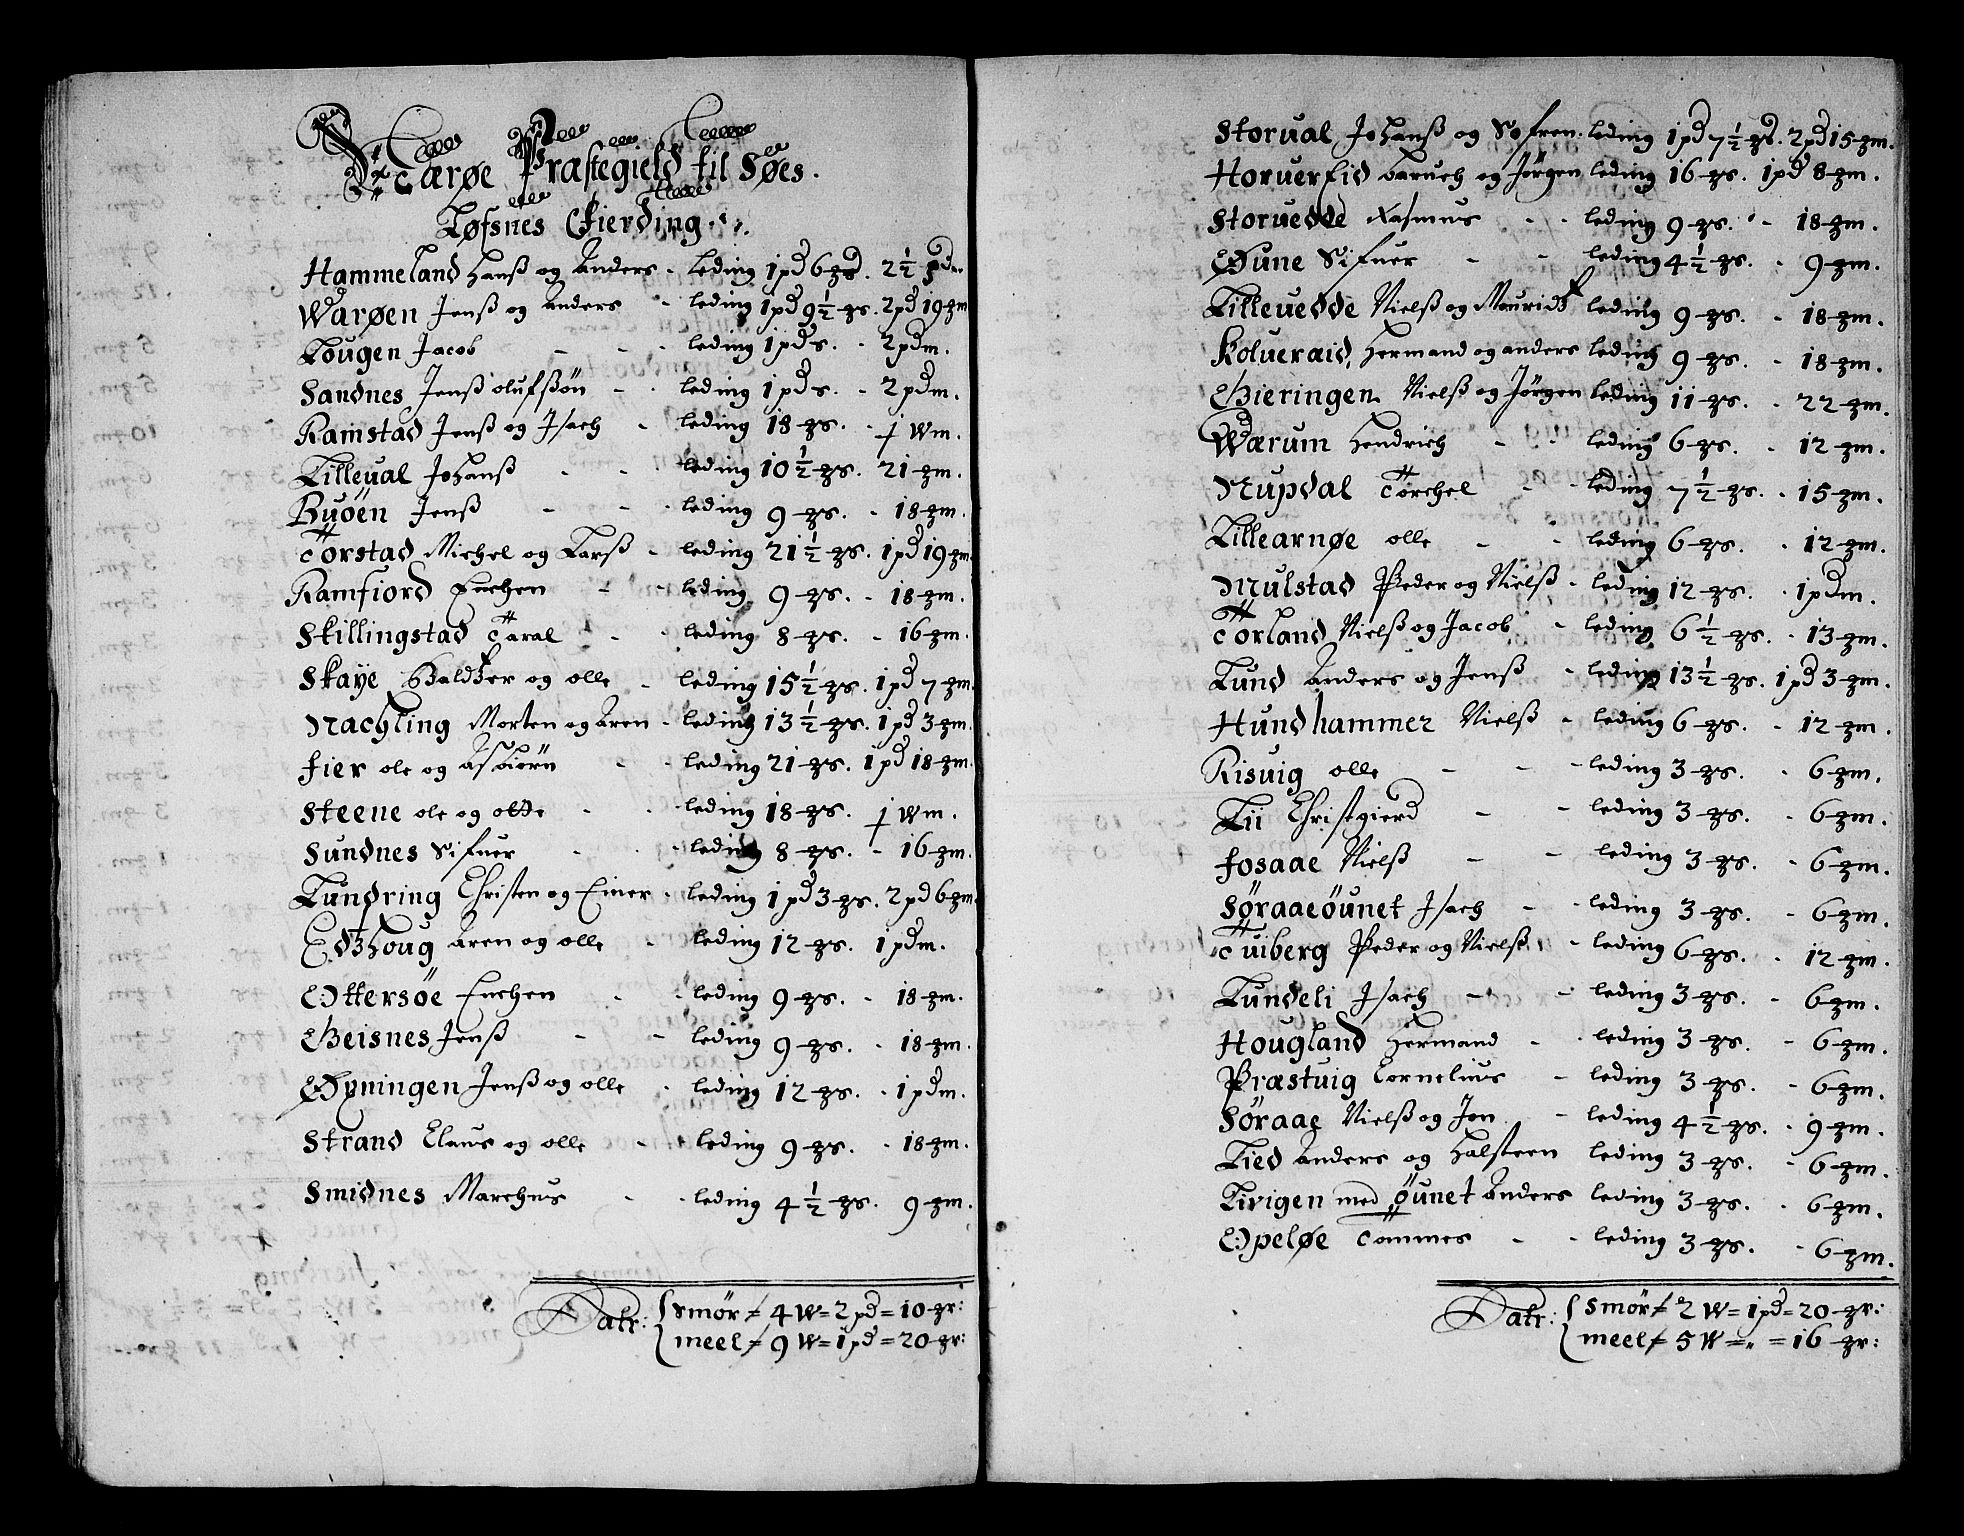 Nærøe Præstegield til Søes.
Løfsnes Fierding
Hammeland Hanß og Anders - leding 1 pd 6 ȝs. 2½ pdm.
Warøen Jenß og Anders - leding 1 pd 9½ ȝs. 2 pd 19 ȝm
Lougen Jacob - - - leding 1 pd s. - 2 pdm.
Sandnes Jenß olufßön - - leding 1 pd s. - 2 pdm.
Ramstad Jenß og Isach - leding 18 ȝs. - j Wm.
Lilleual Johanß - - - leding 10½ ȝs. 21 ȝm.
Buöen Jenß - - - leding 9 ȝs. - 18 ȝm.
Torstad Michel og Larß - leding 21½ ȝs. 1 pd 19 ȝm
Ramfiord Enchen - - leding 9 ȝs. - 18 ȝm.
Skillingstad Taral - - leding 8 ȝs. - 16 ȝm.
Skaye Baldtzer og olle - leding 15½ ȝs. 1 pd 7 ȝm
Nachling Morten og Aren - leding 13½ ȝs. 1 pd 3 ȝm.
Fier ole og Asbiörn - - leding 21 ȝs. 1 pd 18 ȝm
Steene ole og olle - - leding 18 ȝs. j Wm.
Sundnes Sifuer - - leding 8 ȝs. - 16 ȝm.
Lundring Christen og Einer - leding 1 pd 3 ȝs. 2 pd 6 ȝm
Edtzhoug Aren og olle - leding 12 ȝs. 1 pdm.
Ottersöe Enchen - - leding 9 ȝs. - 18 ȝm.
Geisnes Jenß - - leding 9 ȝs. - 18 ȝm.
Øpningen Jenß og olle - leding 12 ȝs. - 1 pdm.
Strand Claus og olle - leding 9 ȝs. - 18 ȝm.
Smidnes Marchus - - leding 4½ ȝs. 9 ȝm.
Latr: { Smör = 4 W = 2 pd = 10 ȝr:
{ meel = 9 W = 1 pd = 20 ȝr:
Storual Johanß og Sofren. leding 1 pd 7½ ȝs. 2 pd 15 ȝm.
Horuereid Baruch og Jörgen leding 16 ȝs. 1 pd 8 ȝm.
Storuedde Rasmus - - leding 9 ȝs. - 18 ȝm.
Øune Sifuer - - leding 4½ ȝs. - 9 ȝm.
Lilleuedde Nielß og Mouridtz leding 9 ȝs. - 18 ȝm.
Kolueræid, Hermand og anders leding 9 ȝs. - 18 ȝm.
Gieringen Nielß og Jörgen leding 11 ȝs. - 22 ȝm.
Wærum Hendrich - - leding 6 ȝs. - 12 ȝm.
Nupdal Torchel - - leding 7½ ȝs. - 15 ȝm.
Lillearnøe olle - - leding 6 ȝs. - 12 ȝm.
Mulstad Peder og Nielß - leding 12 ȝs. - 1 pdm.
Torland Nielß og Jacob - leding 6½ ȝs. - 13 ȝm.
Lund Anders og Jenß - leding 13½ ȝs. 1 pd 3 ȝm.
Hundhammer Nielß - leding 6 ȝs. - 12 ȝm.
Risuig olle - - - leding 3 ȝs. - 6 ȝm.
Lii Christgierd - - leding 3 ȝs. - 6 ȝm.
Fosaae Nielß - - leding 3 ȝs. - 6 ȝm.
Söraaeöunet Isach - - leding 3 ȝs. - 6 ȝm.
Tuiberg Peder og Nielß - leding 6 ȝs. - 12 ȝm.
Lundeli Isach - - leding 3 ȝs. - 6 ȝm.
Hougland Hermand - - leding 3 ȝs. - 6 ȝm.
Præstuig Cornelius - leding 3 ȝs. - 6 ȝm.
Söraae Nielß og Jon - leding 4½ ȝs. - 9 ȝm.
Lied Anders og Halsteen leding 3 ȝs. - 6 ȝm.
Livigen med öunet Anders leding 3 ȝs. - 6 ȝm.
Opeløe Tommes - - leding 3 ȝs. - 6 ȝm.
Latr: { Smör = 2 W = 1 pd = 20 ȝr:
{ meel = 5 W = „ = 16 ȝr: